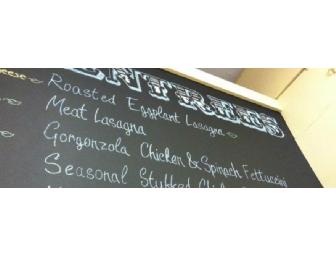 ENTREES
cheese
Roasted Eggplant Lasagna
Meat Lasagna
Gorgonzola Chicken & Spinach Fettuccini
Seasonal Stuffed